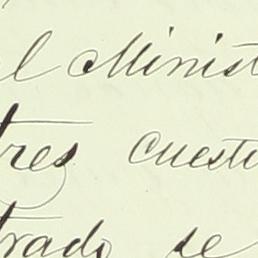 l Minist
tres cuesti
trado se